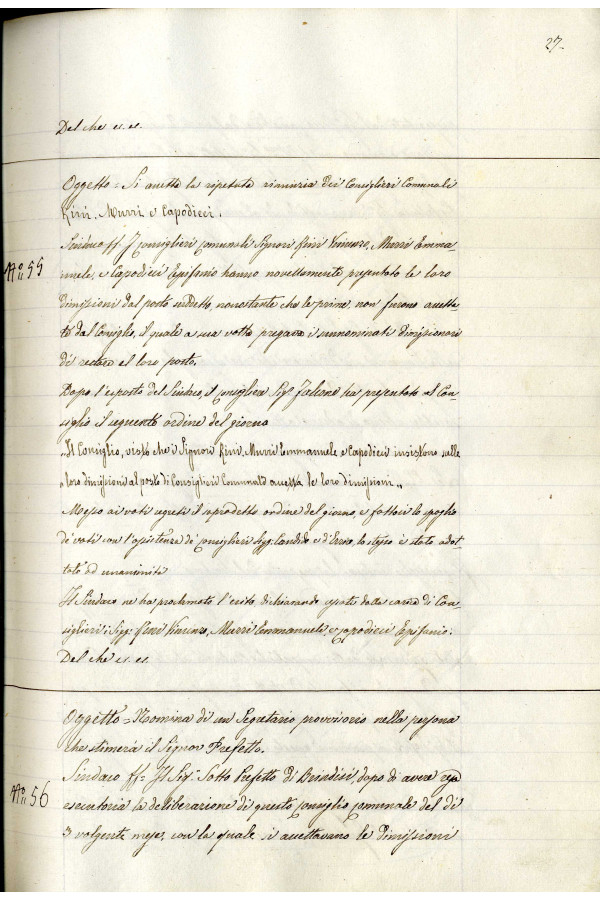 27.
Del che es. es.
Oggetto = Si accetta la ripetuta rinunzia dei Consiglieri Comunali
Lini, Murri e Capodieci.
N.° 55
Sindaco ff. I Consiglieri Comunali Signori Lini Vincenzo, Murri Emma-
nuele, e Capodieci Epifanio hanno novellamente presentato le loro
dimissioni dal posto suddetto, nonostante che le prime non furono accetta-
te dal Consiglio, il quale a sua volta pregava i sunnominati dimissionari
di restare al loro posto.
Dopo l'esposto del Sindaco, il consigliere Sig.r Falcone ha presentato al Con-
siglio il seguente ordine del giorno
„Il Consiglio, visto che i Signori Lini, Murri Emmanuele e Capodieci insistono nelle
„loro dimissioni al posto di Consiglieri Comunali accetta le loro dimissioni„
Messo ai voti segreti il sopradetto ordine del giorno, e fattosi lo spoglio
de' voti con l'assistenza de' consiglieri Sigg. Candido e d'Errico, lo stesso è stato adot-
tato ad unanimità
Il Sindaco ne ha proclamato l'esito, dichiarando cessati dalla carica di Con-
siglieri i Sigg. Lini Vincenzo, Murri Emmanuele, e Capodieci Epifanio.
Del che es. es.
Oggetto = Nomina di un Segretario provvisorio nella persona
che stimerà il Signor Prefetto.
N.° 56
Sindaco ff = Il Sig.r Sotto Prefetto di Brindisi, dopo di avere resa
esecutoria la deliberazione di questo consiglio comunale del dì
3 volgente mese, con la quale si accettavano le dimissioni